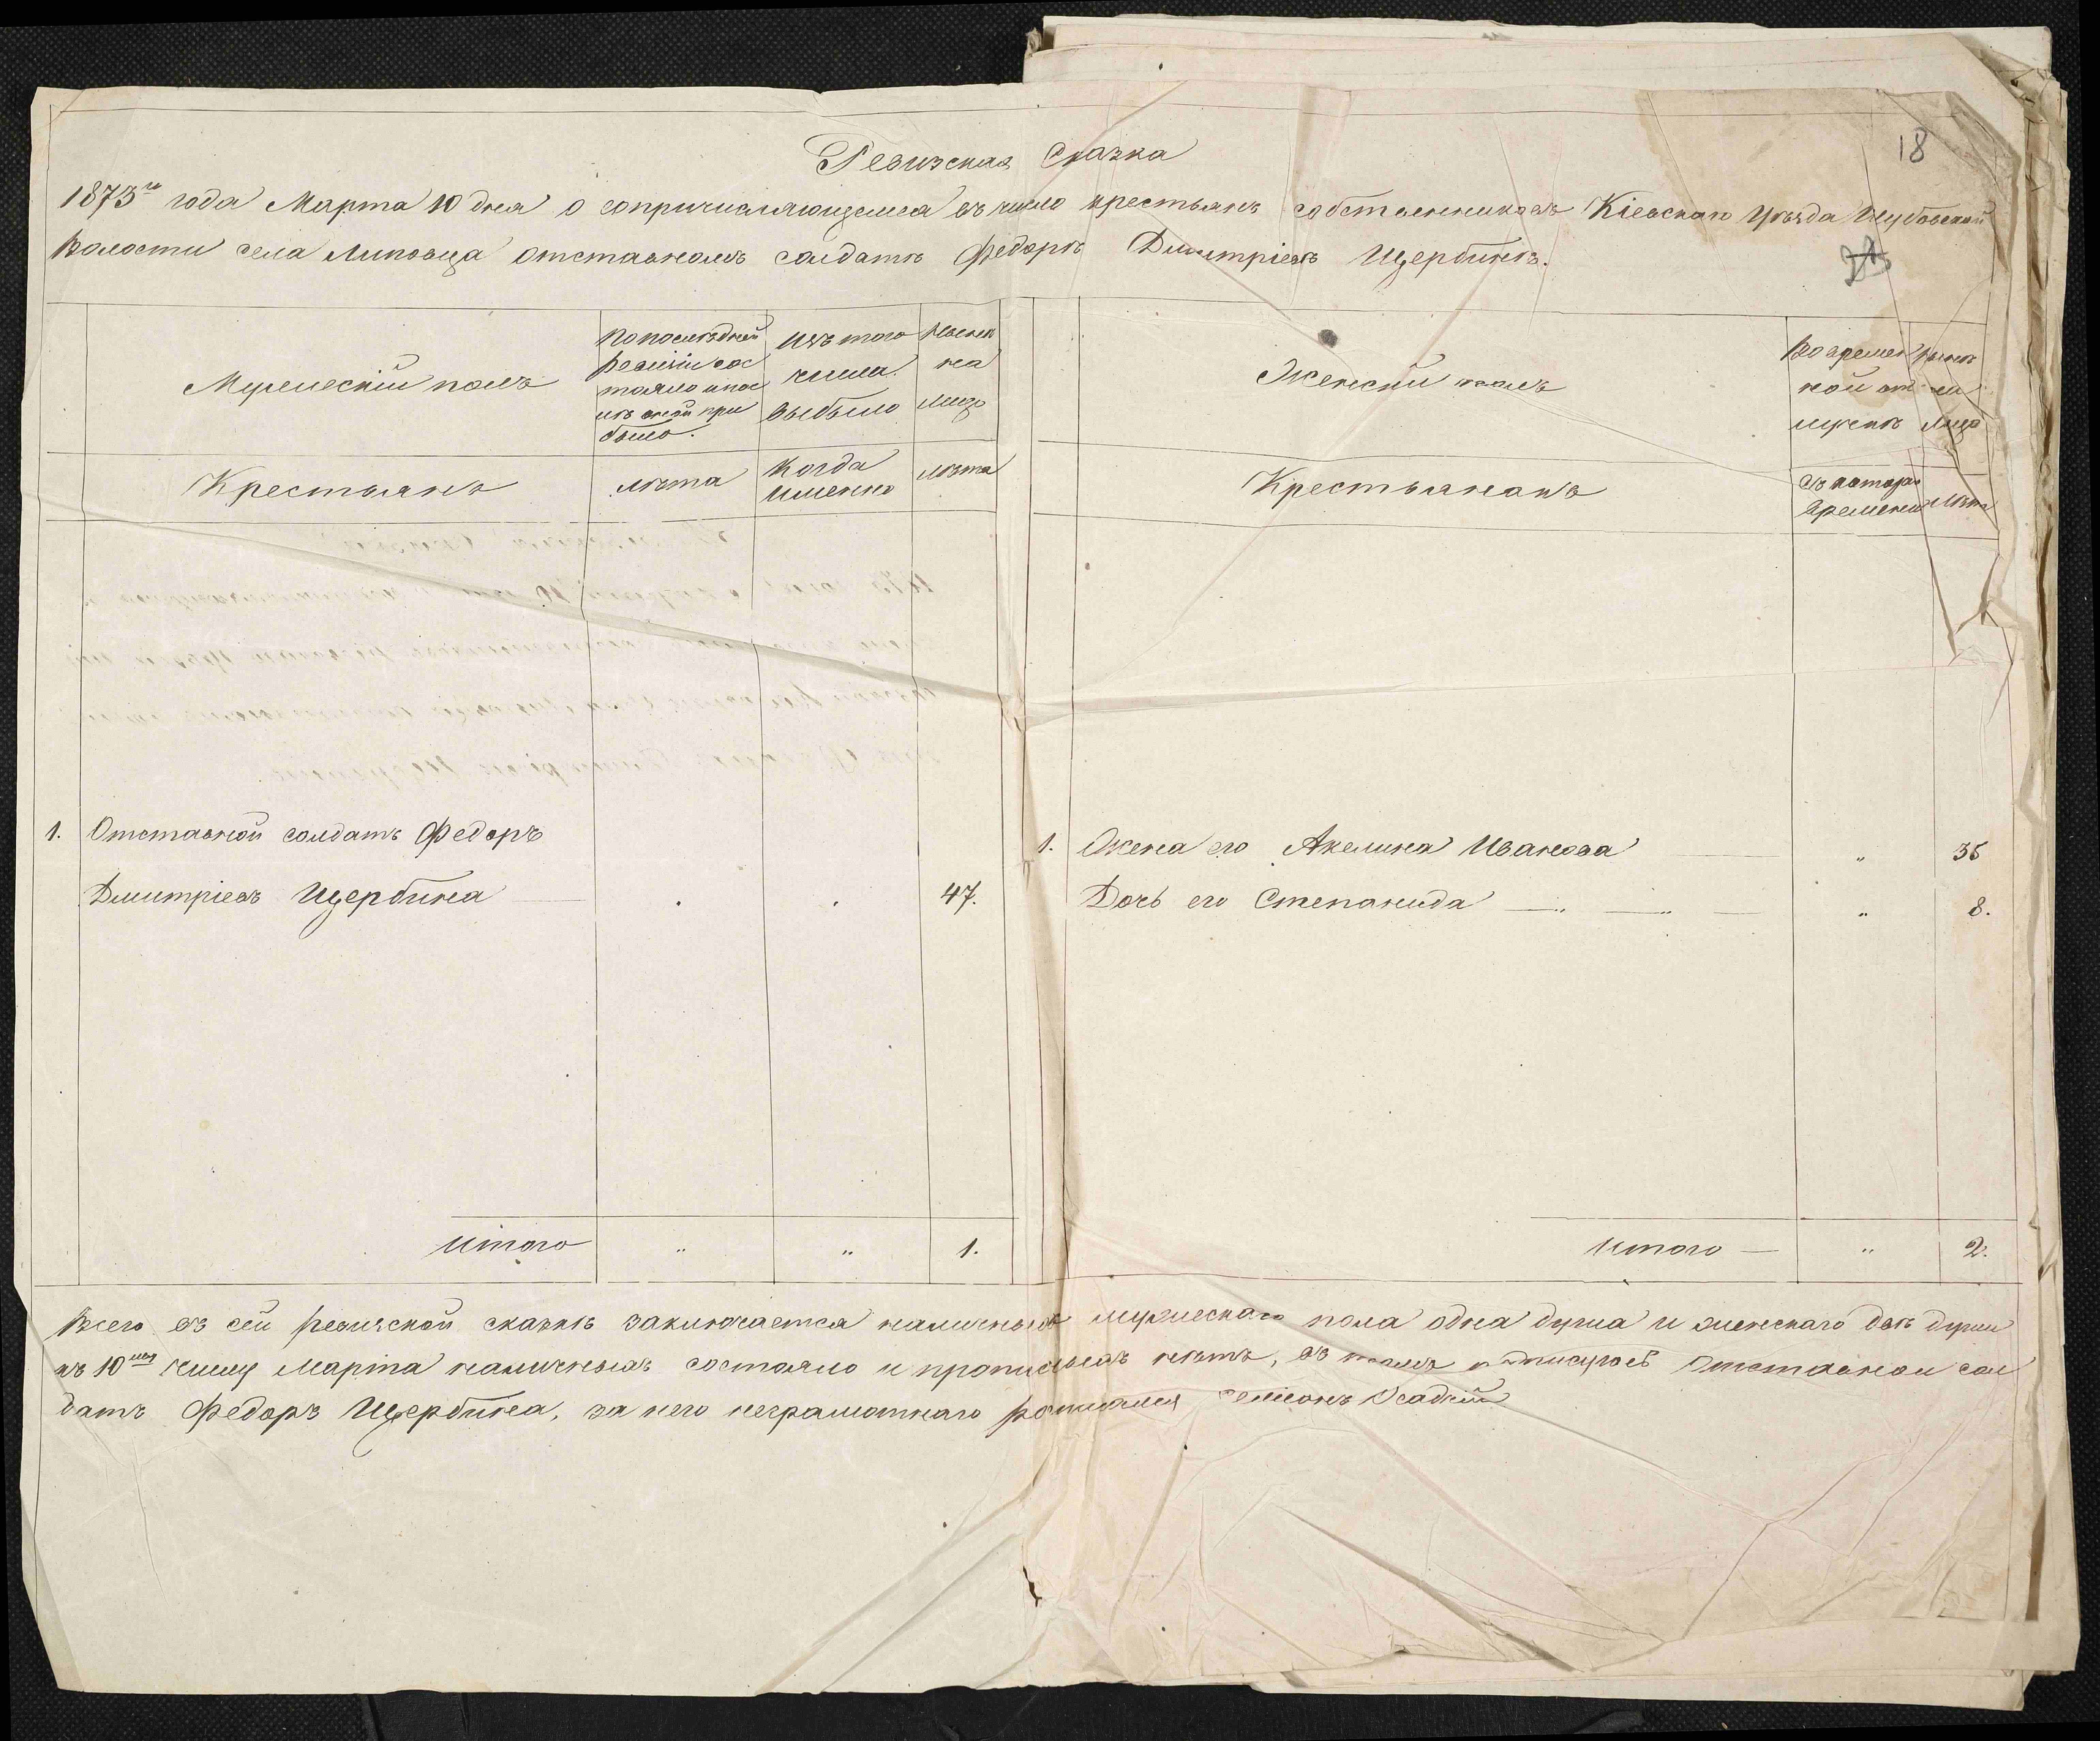 18
Ревизская Сказка
1873го года Марта 10 дня о сопричисляющемся въ число крестьянъ собственниковъ Кіевскаго Уѣзда Шубовской
Волости села Липовца отставномъ солдатѣ Федорѣ Дмитріевѣ Щербинѣ.
Мужескій полъ
По послѣдней
ревизіи сос
тояло и пос
лѣ оной при
было.
Изъ того
числа
выбыло
Нынѣ
на
лицо
Женскій полъ
Во времен
ной от
лучкѣ
Нынѣ
на
лицо
Крестьянъ
лѣта
Когда
именно
лѣта
Крестьянокъ
Съ котораго
времени
Лѣта
1. Отставной солдатъ Федоръ
Дмитріевъ Щербина 47.
1. Жена его Акелина Иванова " 35
Дочь его Степанида " 8.
Итого " " 1.
Итого " 2.
Всего въ сей ревизской сказкѣ заключается наличныхъ мужескаго пола одна душа и женскаго двѣ души
къ 10му числу Марта наличныхъ состояло и прописныхъ нѣтъ, въ томъ подписуюсь Отставной сол
датъ Федоръ Щербина, за него неграмотнаго росписался Семіонъ Осадчій